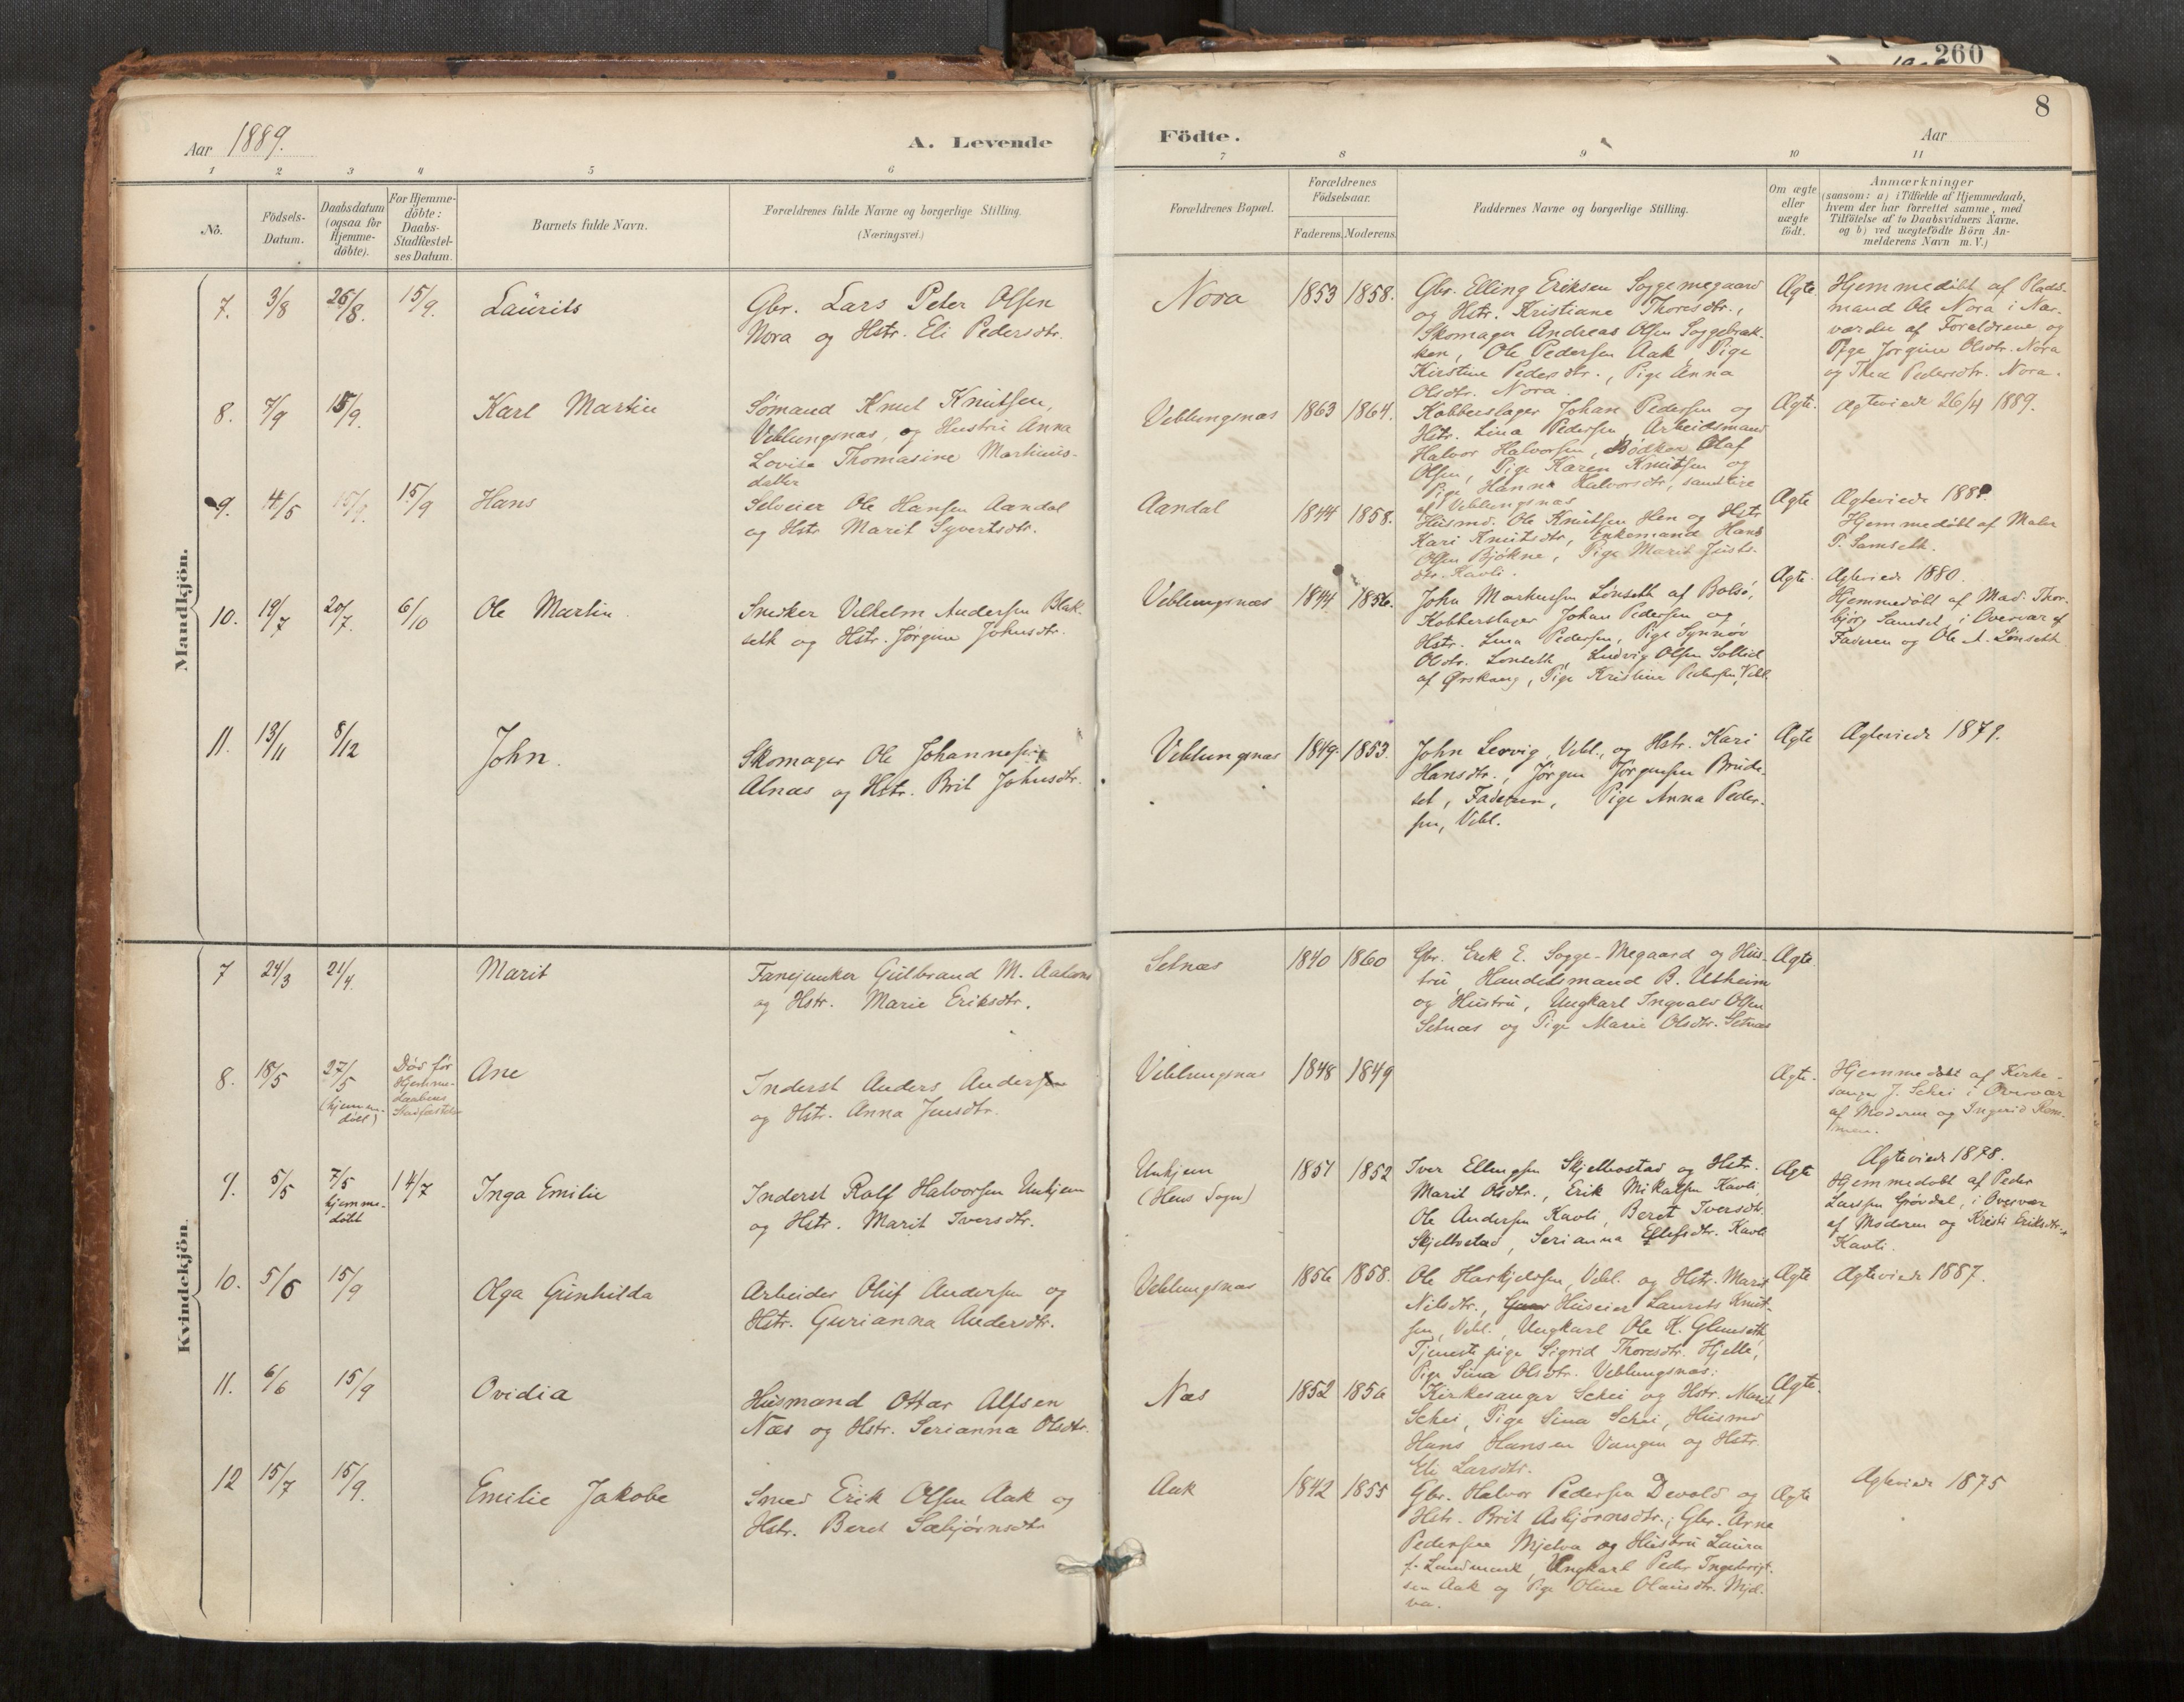 260
8
Aar 1889.
A. Levende
Födte.
Aar
1 2 3 4 5 6 7 8 9 10 11
No.
Födsels-
Datum.
Daabsdatum
(ogsaa för
Hjemme-
döbte).
For Hjemme-
döbte:
Daabs-
Stadfæstel-
ses Datum.
Barnets fulde Navn.
Forældrenes fulde Navne og borgerlige Stilling.
(Næringsvei.)
Forældrenes Bopæl.
Forældrenes
Födselsaar.
Faderens. Moderens.
Faddernes Navne og borgerlige Stilling.
Om ægte
eller
uægte
födt.
Anmærkninger
(saasom: a) i Tilfælde af Hjemmedaab,
hvem der har forrettet samme, med
Tilföielse af to Daabsvidners Navne,
og b) ved uægtefödte Börn An-
melderens Navn m. V.)
Mandkjön.
7. 3/8 25/8. 15/9. Laurits
Gbr. Lars Peter Olsen
Nora og Hstr. Eli Pedersdtr.
Nora 1853 1858.
Gbr. Elling Eriksen Soggemegaard
og Hstr. Kristiane Thoresdtr.,
Skomager Andreas Olsen Soggebræk-
ken, Ole Pedersen Aak, Pige
Kirstine Pedersdtr., Pige Anna
Olsdtr. Nora
Ægte
Hjemmedöbt af Plads-
mand Ole Nora i Nær-
værelse af Forældrene og
Pige Jørgine Olsdtr. Nora
og Thea Pedersdtr. Nora.
8. 7/9 15/9. Karl Martin
Sømand Knut Knutsen,
Veblungsnæs, og Hustru Anna
Lovise Thomasine Martinus-
datter
Veblungsnæs 1863 1864.
Kobberslager Johan Pedersen og
Hstr. Lina Pedersen, Arbeidsmand
Halvor Halvorsen, Bødker Olaf
Olsen, Pige Karen Knutsen og
Pige Hanna Halvorsdtr, samtlige
af Veblungsnæs
Ægte.
Ægteviede 26/4 1889.
9. 4/5 15/9. 15/9 Hans
Selveier Ole Hansen Aandal
og Hstr Marit Syvertsdtr.
Aandal 1844 1858.
Husmd. Ole Knutsen Hen og Hstr
Kari Knutsdtr, Enkemand Hans
Olsen Bjökne, Pige Marit Justs-
dtr. Kavli.
Ægte
Ægteviede
Hjemmedöbt af Maler
P. Samseth.
10. 19/7 20/7. 6/10 Ole Martin
Snedker Vilhelm Andersen Blak-
seth og Hstr. Jørgine Johnsdtr.
Veblungsnæs 1844 1856.
John Markussen Lönseth af Bolsö,
Kobberslager Johan Pedersen og
Hstr. Lina Pedersen, Pige Synnöv
Olsdtr. Lönseth, Ludvig Olsen Sollid
af Ørskoug, Pige Kristine Pedersen, Vebl.
Ægte.
Ægteviede 1880.
Hjemmedöbt af Mad. Thor-
björg Samset, i Overvær af
Faderen og Ole A. Lönseth
11. 13/11 8/12 John.
Skomager Ole Johannesen
Alnæs og Hstr. Brit Johnsdtr.
Veblungsnæs 1849. 1853.
John Lervig, Vebl., og Hstr. Kari
Hansdtr., Jörgen Jörgensen Brude-
set, Faderen, Pige Anna Peder-
sen, Vebl.
Ægte
Ægteviede 1879.
Kvindekjön.
7 24/3 21/4. Marit
Fanejunker Gulbrand M. Aalans
og Hstr. Marie Eriksdtr.
Setnæs 1840 1860
Gbr. Erik E. Sogge-Megaard og Hus-
tru, Handelsmand B. Utheim
og Hustru, Ungkarl Ingvald Olsen
Setnæs og Pige Marie Olsdtr. Setnæs
Ægte.
8. 18/5 27/5
(hjemme-
döbt)
Död før
Hjemme-
daabens
Stadfæstelse
Ane
Inderst Anders Andersen
og Hstr. Anna Jensdtr.
Veblungsnæs 1848 1849
Ægte.
Hjemmedöbt af Kirke-
sanger J. Schei i Overvær
af Moderen og Ingerid Rom-
men.
9. 5/5 7/5
hjemme-
döbt
14/7 Inga Emilie
Inderst Rolf Halvorsen Unhjem
og Hstr. Marit Iversdtr.
Unhjem
(Hens Sogn)
1851 1852
Iver Ellingsen Skjelbostad og Hstr.
Marit Olsdtr., Erik Mikalsen Kavli,
Ole Andersen Kavli, Beret Iversdtr.
Skjelbostad, Serianna Ellefsdtr. Kavli
Ægte
Ægteviede 1878.
Hjemmedöbt af Peder
Larsen Grövdel, i Overvær
af Moderen og Kristi Eriksdtr.
Kavli.
10. 5/6 15/9 Olga Gunhilda
Arbeider Oluf Andersen og
Hstr. Gurianna Andersdtr.
Veblungsnæs 1856 1858.
Ole Haskjelsen, Vebl. og Hstr. Marit
Nilsdtr., Huseier Laurits Knut-
sen, Vebl., Ungkarl Ole K. Glumseth,
Tjenestepige Sigrid Thoresdtr. Hjelle,
Pige Sina Olsdtr. Veblungsnæs.
Ægte
Ægteviede 1887.
11. 6/6 15/9 Ovidia
Husmand Ottar Alfsen
Næs og Hstr. Serianna Olsdtr.
Næs 1852 1856
Kirkesanger Schei og Hstr. Marit
Schei, Pige Sina Schei, Husmd
Hans Hansen Vangen og Hstr.
Eli Larsdtr.
Ægte.
12 15/7 15/9. Emilie Jakobe
Smed Erik Olsen Aak og
Hstr. Beret Sæbjörnsdtr
Aak 1842 1855
Gbr. Halvor Pedersen Devold og
Hstr. Brit Asbjörnsdtr.; Gbr. Arne
Pedersen Mjelva og Hustru Laura
f. Landmark, Ungkarl Peder Ingebrigt-
sen Aak og Pige Oline Olausdtr. Mjel-
va.
Ægte
Ægteviede 1875